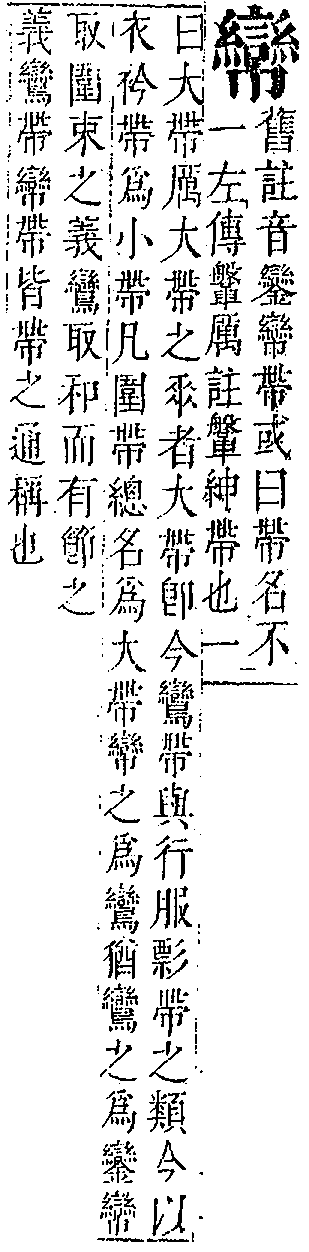 㡩舊註音鑾㡩帶或曰帶名不
一左傳鞶厲註鞶紳帶也一
曰大帶厲大帶之垂者大帶卽今鸞帶與行服彯帶之類今以
衣衿帶爲小帶凡圍帶總名爲大帶㡩之爲鸞猶鸞之爲鑾㡩
取圍束之義鸞取和而有節之
義鸞帶㡩帶皆帶之通稱也